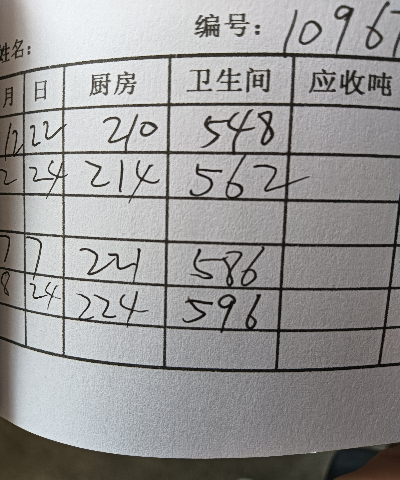 编号: 10967
姓名:
月 日 厨房 卫生间 应收吨
12 22 210 548
2 24 214 562
7 7 221 586
8 24 224 596